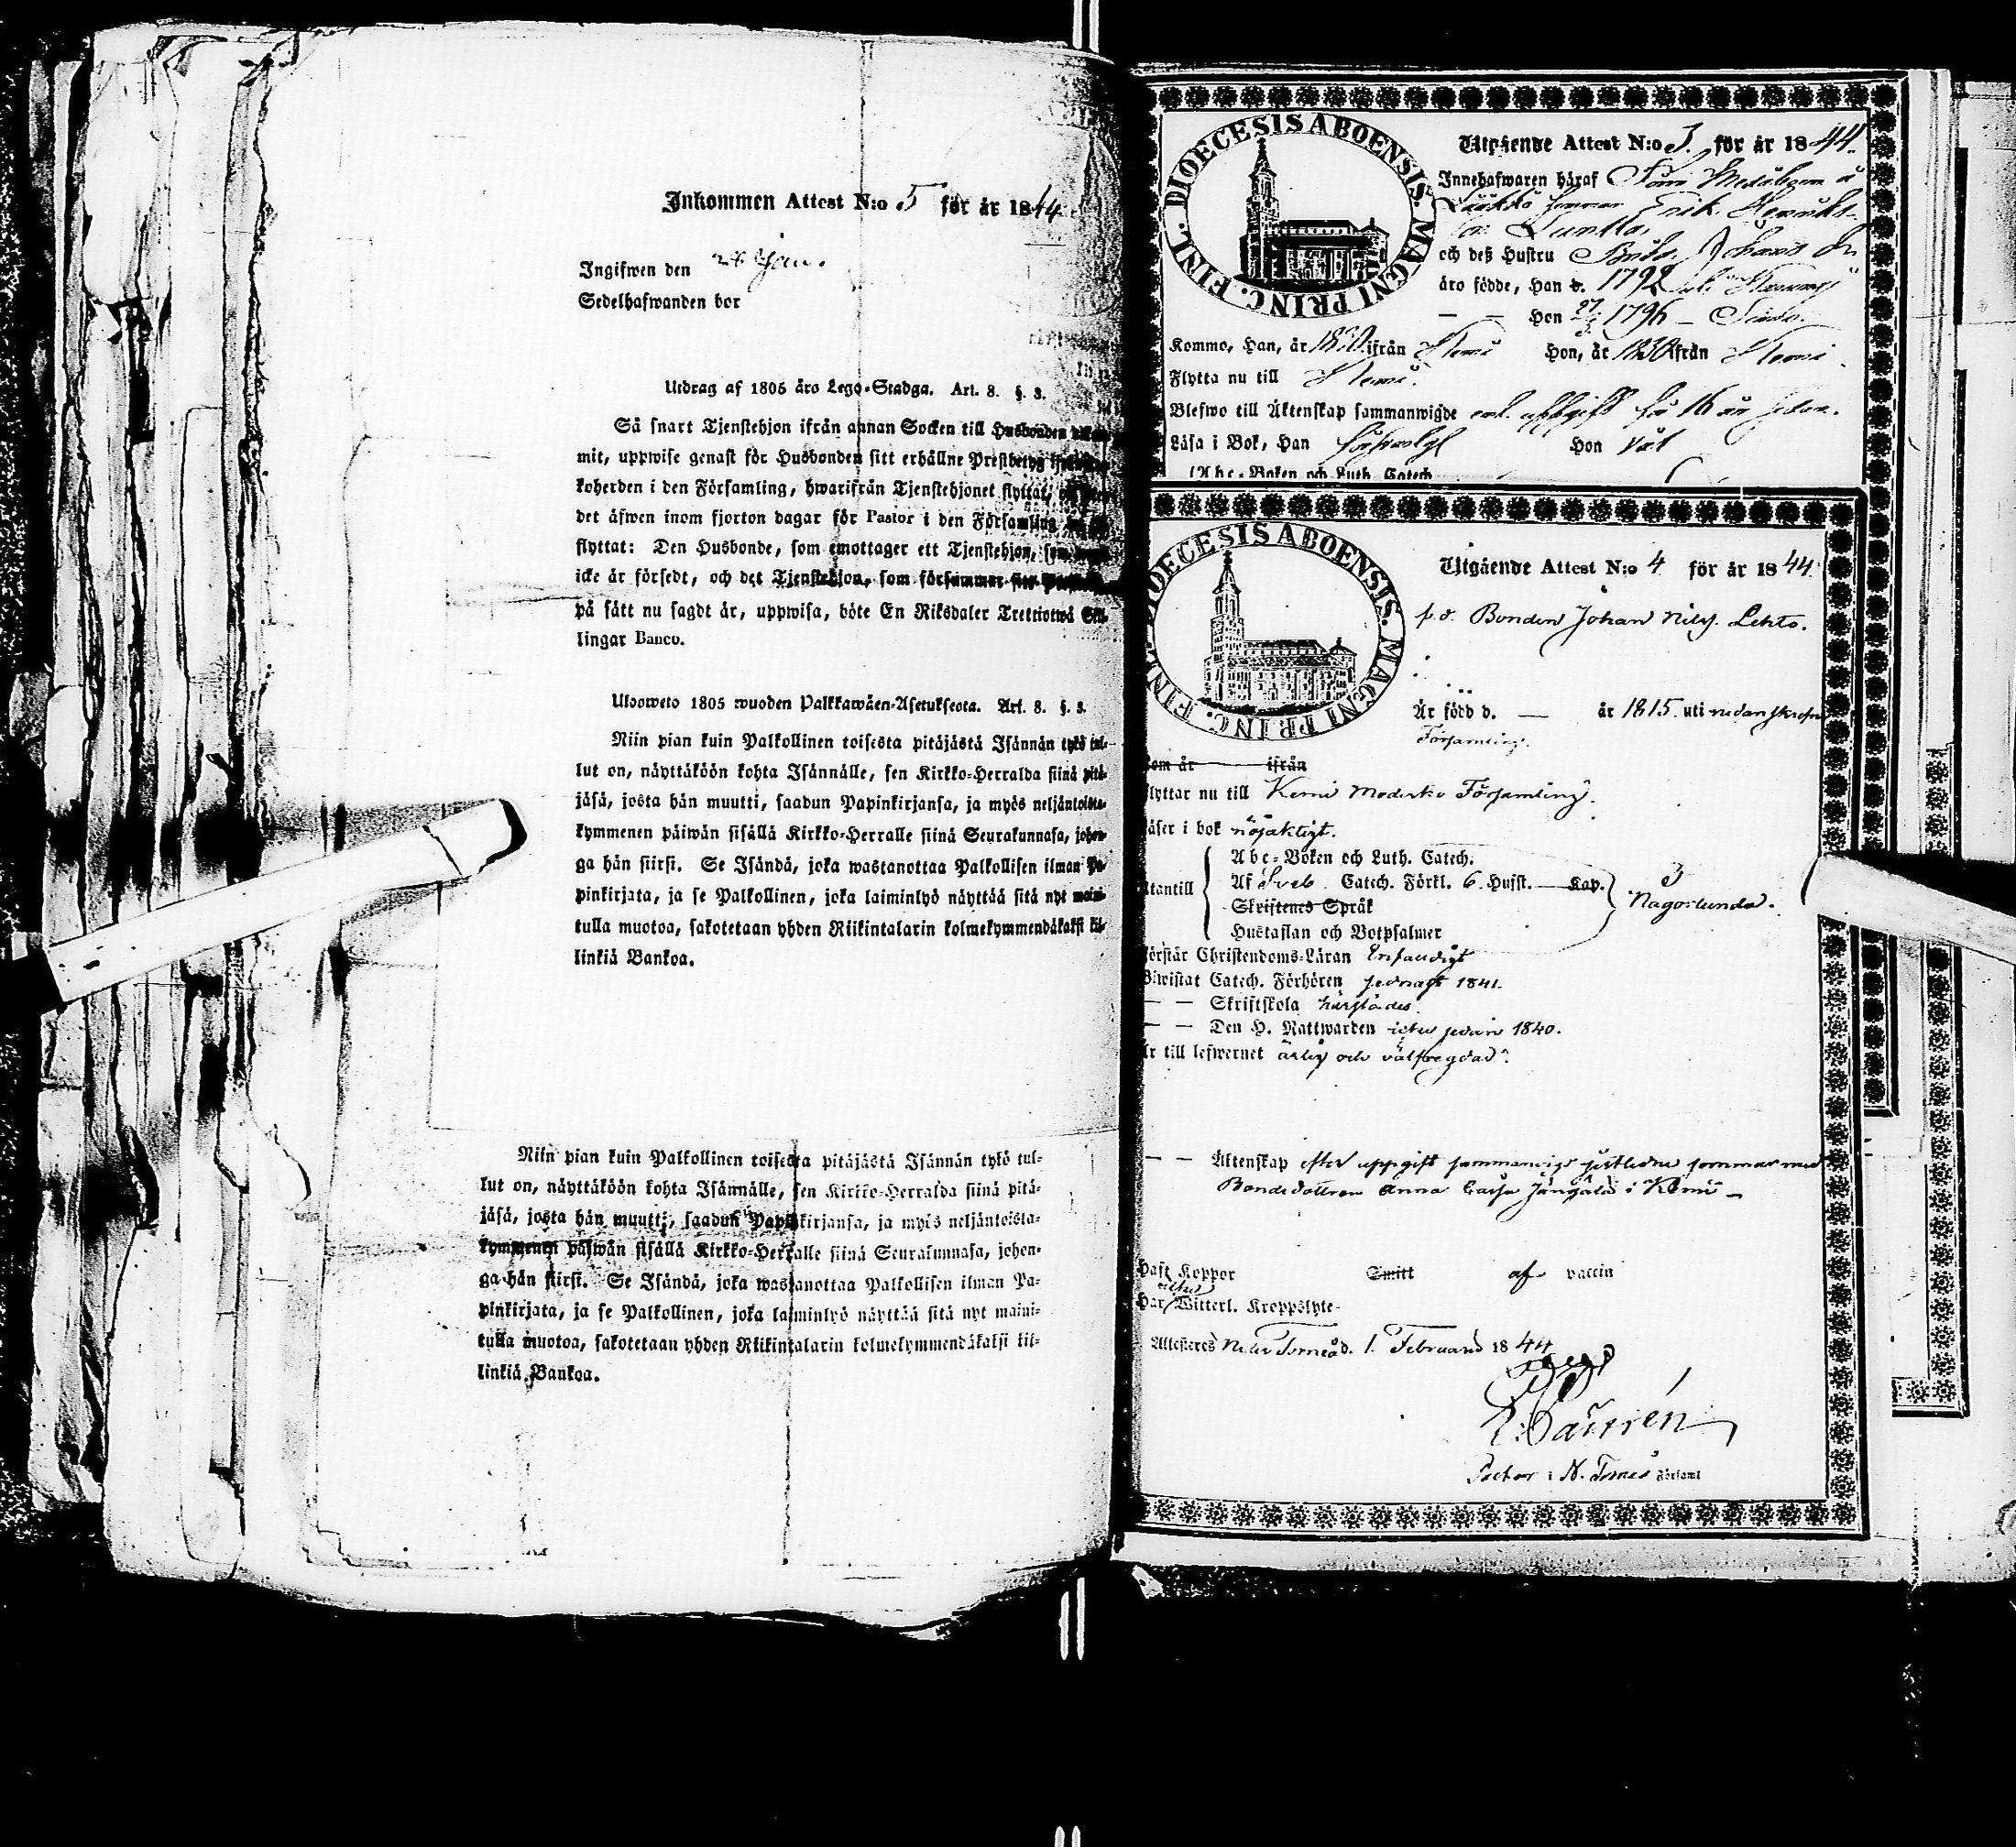 Inkommen Attest N:o 5 för år 1844.
Ingifwen den 28 Jan.
Sedelhafwanden bor
Utdrag af 1805 års Lego-Stadga. Art. 8. §. 8.
Så snart Tjenstehjon ifrån annan Socken till Husbonden
mit, uppwise genast för Husbonden sitt erhållne Prestbetyg
koherden i den Församling, hwarifrån Tjenstehjonet flyttat,
det äfwen inom fjorton dagar för Pastor i den Församling
flyttat: Den Husbonde, som emottager ett Tjenstehjon,
icke är försedt, och det Tjenstehjon, som försummar
på sätt nu sagdt är, uppwisa, böte En Riksdaler Trettiotwå Skil-
lingar Banco.
Ulosweto 1805 wuoden Palkkawäen-Asetuksesta. Art. 8. §. 8.
Niin pian kuin Palkollinen toisesta pitäjästä Isännän tykö tul-
lut on, näyttäköön kohta Isännälle, sen Kirkko-Herralda siinä pitä-
jäsä, josta hän muutti, saadun Papinkirjansa, ja myös neljäntoista-
kymmenen päiwän sisällä Kirkko-Herralle siinä Seurakunnasa, johon-
ga hän siirsi. Se Isändä, joka wastanottaa Palkollisen ilman Pa-
pinkirjata, ja se Palkollinen, joka laiminlyö näyttää sitä nyt maini-
tulla muotoa, sakotetaan yhden Riikintalarin kolmekymmendäkaksi kil-
linkiä Bankoa.
Niin pian kuin Palkollinen toisesta pitäjästä Isännän tykö tul-
lut on, näyttäköön kohta Isännälle, sen Kirkko-Herralda siinä pitä-
jäsä, josta hän muutti, saadun Papinkirjansa, ja myös neljäntoista-
kymmenen päiwän sisällä Kirkko-Herralle siinä Seurakunnasa, johon-
ga hän siirsi. Se Isändä, joka wastanottaa Palkollisen ilman Pa-
pinkirjata, ja se Palkollinen, joka laiminlyö näyttää sitä nyt maini-
tulla muotoa, sakotetaan yhden Riikintalarin kolmekymmendäkaksi kil-
linkiä Bankoa.
DIOECESIS ABOENSIS. MAGNI PRINC. FINL.
Utgående Attest N:o 3. för år 1844.
Innehafwaren häraf
Erik Henriks-
och deß Hustru
äro födde, Han d. 1792
Hon 27/3 1796
Kommo, Han, år 1830 ifrån Kemi Hon, år 1830 ifrån Kemi
Flytta nu till Kemi.
Blefwo till Äktenskap sammanwigde enl. uppgift för 16 år sedan.
Läsa i Bok, Han försvarligt Hon väl
Abc-Boken och Luth. Catech.
DIOECESIS ABOENSIS. MAGNI PRINC. FINL.
Utgående Attest N:o 4 för år 1844.
Bonden Johan Nils. Lehto.
Är född d. — år 1815. uti nedanskrefne
Församling.
Kom år — ifrån
Flyttar nu till Kemi Moderko Församling.
Läser i bok nöjaktigt.
Utantill
Abc-Boken och Luth. Catech.
Af Sveb. Catech. Förkl. 6. Hufst. — Kap.
Skriftenes Språk
Hustaflan och Botpsalmer
Någorlunda.
Förstår Christendoms-Läran Enfaldigt
Biwistat Catech. Förhören sednast 1841.
— — Skriftskola härstädes.
— — Den H. Nattwarden icke sedan 1840.
Är till lefwernet ärlig och välfregdad.
— — Äktenskap efter uppgift sammanvigd sistledne sommar med
Bondedottren Anna Caisa Jängälä i Kemi —
Haft Koppor Smitt af vaccin
Har icke Witterl. Kroppslyte
Attesteras Neder Torneå d. 1. Februari 1844
Pastor i N. Torneå Församl